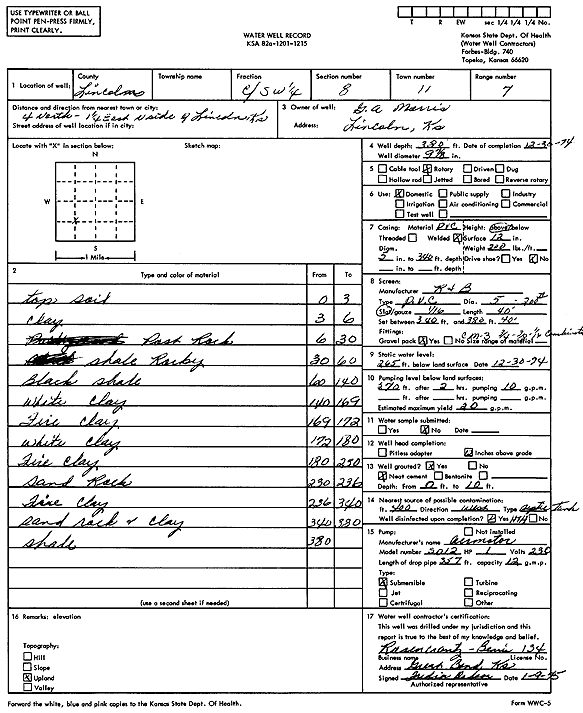 USE TYPEWRITER OR BALL
POINT PEN-PRESS FIRMLY,
PRINT CLEARLY.
WATER WELL RECORD
KSA 82a-1201-1215
T R EW sec 1/4 1/4 1/4 No.
Kansas State Dept. Of Health
(Water Well Contractors)
Forbes-Bldg. 740
Topeka, Kansas 66620
1 Location of well: County Lincoln Township name Fraction C/SW¼ Section number 8 Town number 11 Range number 7
Distance and direction from nearest town or city:
4 north - 1¼ East N side of Lincoln Ks
Street address of well location if in city:
3 Owner of well: G.A. Morris
Address: Lincoln, Ks
Locate with "X" in section below: Sketch map:
N
W E
S
1 Mile
4 Well depth: 380 ft. Date of completion 12-30-74
Well diameter in.
5 Cable tool X Rotary Driven Dug
Hollow rod Jetted Bored Reverse rotary
6 Use: X Domestic Public supply Industry
Irrigation Air conditioning Commercial
Test well
7 Casing: Material PVC Height: above/below
Threaded Welded X Surface 12 in.
Diam. Weight 200 lbs./ft.
5 in. to 340 ft. depth Drive shoe? Yes X No
in. to ft. depth
2 Type and color of material From To
top soil 0 3
clay 3 6
Post Rock 6 30
shale Rocky 30 60
Black shale 60 140
White clay 140 169
Fire clay 169 172
white clay 172 180
Fire clay 180 230
Sand Rock 230 236
Fire clay 236 340
sand rock & clay 340 380
shale 380
(use a second sheet if needed)
8 Screen:
Manufacturer R & B
Type P.V.C Dia. 5 - 200th
Slot/gauze 1/16 Length 40'
Set between 340 ft. and 380 ft. 40'
Fittings:
Gravel pack X Yes No Size range of material
9 Static water level:
265 ft. below land surface Date 12-30-74
10 Pumping level below land surfaces:
370 ft. after 2 hrs. pumping 10 g.p.m.
ft. after hrs. pumping g.p.m.
Estimated maximum yield 20 g.p.m.
11 Water sample submitted:
Yes X No Date
12 Well head completion:
Pitless adapter Inches above grade
13 Well grouted? X Yes No
X Neat cement Bentonite
Depth: From 0 ft. to 10 ft.
14 Nearest source of possible contamination:
ft. 400 Direction West Type septic tank
Well disinfected upon completion? X Yes HTH No
15 Pump: Not installed
Manufacturer's name Aermotor
Model number HP 1 Volts 230
Length of drop pipe 357 ft. capacity 12 g.m.p.
Type:
X Submersible Turbine
Jet Reciprocating
Certrifugal Other
16 Remarks: elevation
Topography:
Hill
Slope
X Upland
Valley
17 Water well contractor's certification:
This well was drilled under my jurisdiction and this
report is true to the best of my knowledge and belief.
Rosencrantz - Bemis 134
Business name License No.
Address Great Bend, Ks
Signed
Authorized representative
Forward the white, blue and pink copies to the Kansas State Dept. Of Health.
Form WWC-5